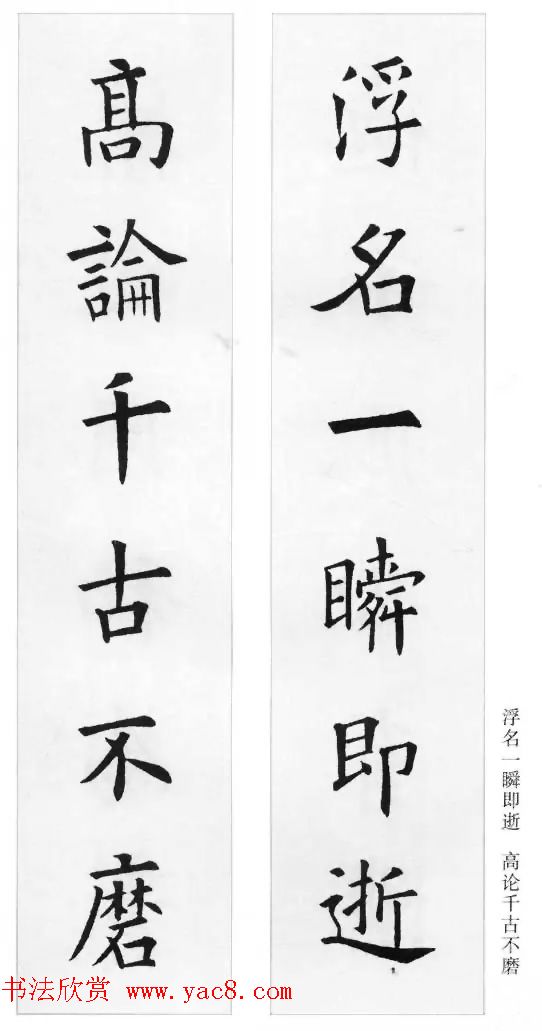 浮名一瞬即逝
髙論千古不磨
浮名一瞬即逝　高论千古不磨
书法欣赏 www.yac8.com